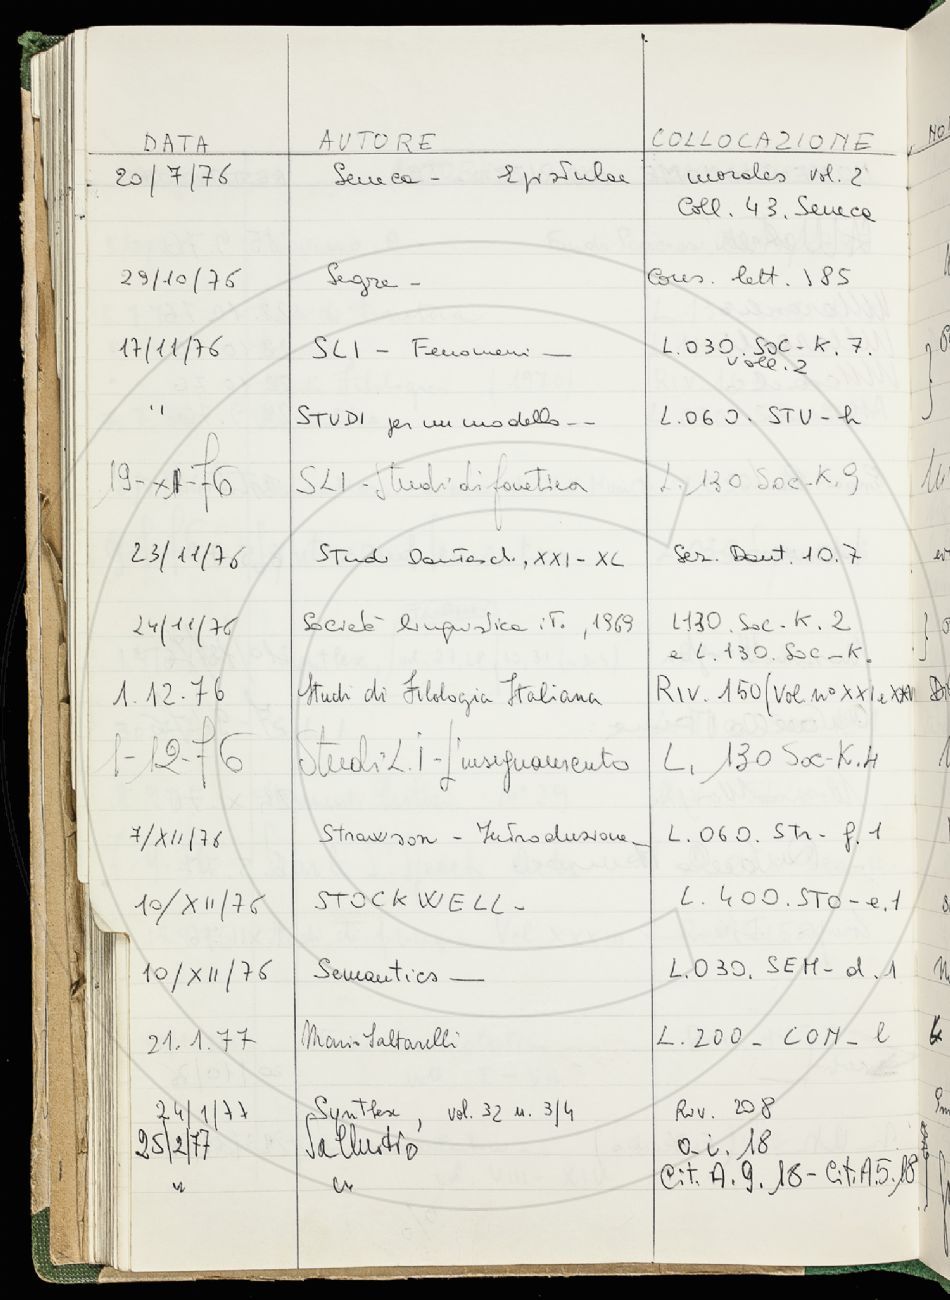 DATA AUTORE COLLOCAZIONE
20/7/76 Seneca - Epistulae morales vol. 2
Coll. 43. Seneca
29/10/76 Segre - Cons. lett. 185
17/11/76 SLI - Fenomeni — L.030. Soc-K. 7.
voll. 2
" STUDI per un modello -- L.060. STU-h
19-XI-76 SLI - Studi di fonetica L. 130 Soc-K. 9
23/11/76 Studi Danteschi, XXI-XL Sez. Dant. 10.7
24/11/76 Società linguistica it., 1969 L130. Soc-K. 2
e L.130. Soc-K.
1.12.76 Studi di Filologia Italiana Riv. 150 (Vol. nº XXI e XXVI
1-12-76 Studi L.I - L'insegnamento L, 130 Soc-K.4
7/XII/76 Strawson - Introduzione - L.060. Str- f.1
10/XII/76 STOCKWELL - L. 400.STO-e.1
10/XII/76 Semantics — L.030. SEM-d.1
21.1.77 Mario Saltarelli L.200- COM-l
24/1/77 Synthese, vol. 32 n. 3/4 Riv. 208
25/2/77 Sallustio a.i. 18
" " Cit. A.9.18 - Cit.A5.18